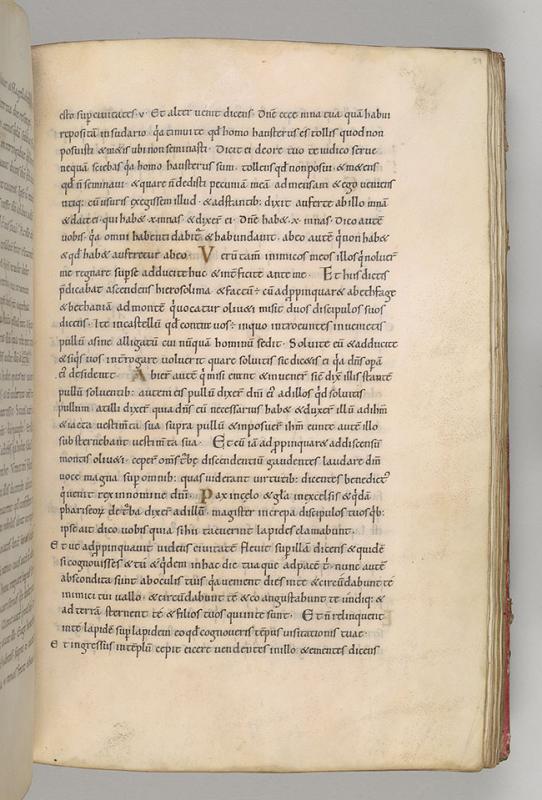 esto sup civitates · v · Et alter venit dicens · Dñe ecce mna tua quā habui
repositā in sudario · q̃a timui te qđ homo hausterus es tollis quod non
posuisti & metis ubi non seminasti · Dicit ei de ore tuo te iudico serve
nequā · sciebas q̃a homo hausterus sum · tollens qđ non posui · & metens
qđ ñ seminavi · & quare ñ dedisti pecuniā meā ad mensam & ego veniens
utiq; cū usuris exegissem illud · & adstantib; dixit auferte ab illo mnā
& date ei · qui hab& · x · mnas · & dixer̄ ei · Dñe hab& · x · mnas · Dico autē
vobis · q̃a omni habenti dabit̃ & habundavit · ab eo autē q̃ non hab&
& qđ hab& auferetur ab eo · Verū tam̄ inimicos meos illos q̃ noluer̄
me regnare sup se adducite huc & interficite ante me · Et his dictis
p̃dicabat ascendens hierosolima · & factū ÷ cū adp̃pinquar& ad bethfage
& bethania ad montē q̃ vocatur oliveti misit duos discipulos suos
dicens · Ite in castellū qđ contra vos ÷ in quo introeuntes invenietis
pullū asine alligatū cui nūquā hominū sedit · Solvite eū & adducite
& siq̃s vos interrogare voluerit quare solvitis sic dic&is ei q̃a dñs opā
ei' desiderat · Abier̄ autē q̃ missi erant & invener̄ sic̃ dix̃ illis stantē
pullū solventib; autem eis pullū dixer̄ dñi ei' ad illos qđ solvitis
pullum at illi dixer̄ quia dñs eū necessariū hab& & duxer̄ illū ad ihm̄
& iactantes vestim̄ta sua supra pullū & inposuer̄ ihm̄ eunte autē illo
substernebant vestim̄ta sua · Et cū iā adp̃pinquar& ad discensū
montis oliveti · ceper̄ om̄s t̃be discendentiū gaudentes laudare dm̄
voce magna sup omnib; quas viderant virtutib; dicentes benedict'
q̃ venit rex in nomine dñi · Pax in cęlo & gl̃a in excelsis & q̃dā
phariseor̃ de t̃ba dixer̄ ad illū · magister increpa discipulos tuos q̃b;
ipse ait dico vobis quia si hii tacuerint lapides clamabunt ·
Et ut adp̃pinquavit videns civitatē flevit sup illā dicens & quidē
si cognovisses & tu & q̃dem in hac die tua que ad pacē t̃ · nunc autē
abscondita sunt ab oculis tuis q̃a venient dies in te & circūdabunt te
inimici tui vallo · & circūdabunt te & coangustabunt te undiq; &
ad terrā sternent te & filios tuos qui in te sunt · Et ñ relinquent
in te lapidē sup lapidem eo qđ cognoveris tēpus visitationis tuae ·
Et ingressus in tēplū cepit eicere vendentes in illo & ementes dicens